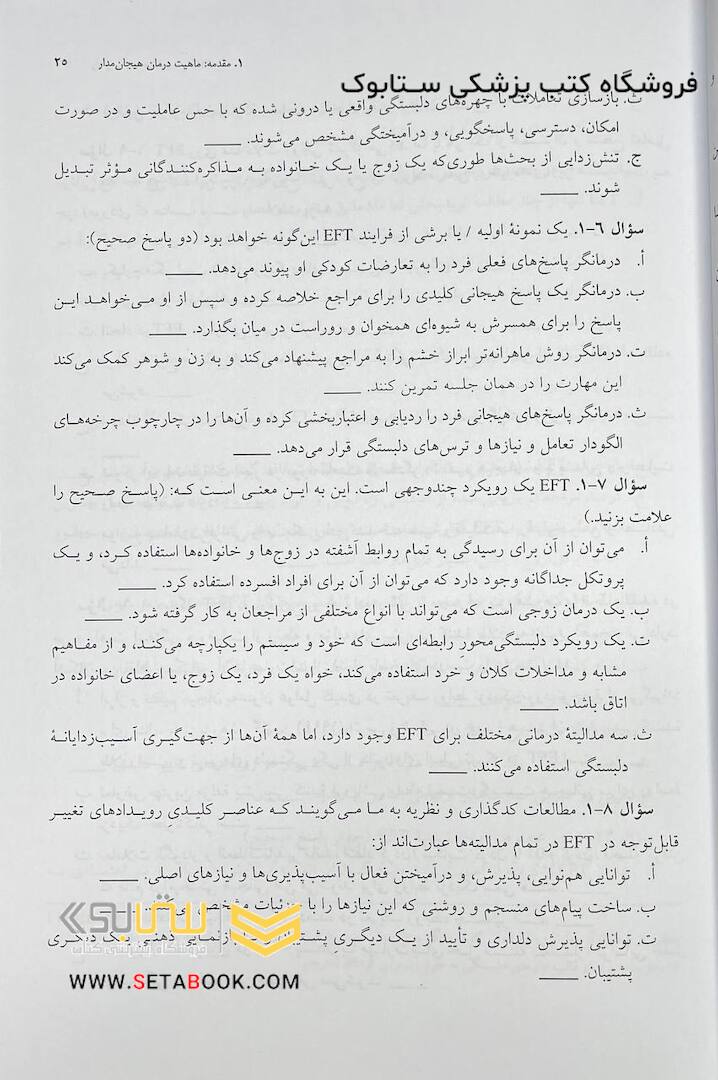 ۱. مقدمه: ماهیت درمان هیجان‌مدار ۲۵
فروشگاه کتب پزشکی ستابوک
ث. بازسازی تعاملات با چهره‌های دلبستگی واقعی یا درونی شده که با حس عاملیت و در صورت
امکان، دسترسی، پاسخگویی، و درآمیختگی مشخص می‌شوند. ____
ج. تنش‌زدایی از بحث‌ها طوری‌که یک زوج یا یک خانواده به مذاکره‌کنندگانی مؤثر تبدیل
شوند. ____
سؤال ۶-۱. یک نمونهٔ اولیه / یا برشی از فرایند EFT این‌گونه خواهد بود (دو پاسخ صحیح):
أ. درمانگر پاسخ‌های فعلی فرد را به تعارضات کودکی او پیوند می‌دهد. ____
ب. درمانگر یک پاسخ هیجانی کلیدی را برای مراجع خلاصه کرده و سپس از او می‌خواهد این
پاسخ را برای همسرش به شیوه‌ای همخوان و روراست در میان بگذارد. ____
ت. درمانگر روش ماهرانه‌تر ابراز خشم را به مراجع پیشنهاد می‌کند و به زن و شوهر کمک می‌کند
این مهارت را در همان جلسه تمرین کنند. ____
ث. درمانگر پاسخ‌های هیجانی فرد را ردیابی و اعتباربخشی کرده و آن‌ها را در چارچوب چرخه‌های
الگودار تعامل و نیازها و ترس‌های دلبستگی قرار می‌دهد. ____
سؤال ۷-۱. EFT یک رویکرد چندوجهی است. این به این معنی است که: (پاسخ صحیح را
علامت بزنید.)
أ. می‌توان از آن برای رسیدگی به تمام روابط آشفته در زوج‌ها و خانواده‌ها استفاده کرد، و یک
پروتکل جداگانه وجود دارد که می‌توان از آن برای افراد افسرده استفاده کرد. ____
ب. یک درمان زوجی است که می‌تواند با انواع مختلفی از مراجعان به کار گرفته شود. ____
ت. یک رویکرد دلبستگی‌محور رابطه‌ای است که خود و سیستم را یکپارچه می‌کند، و از مفاهیم
مشابه و مداخلات کلان و خرد استفاده می‌کند، خواه یک فرد، یک زوج، یا اعضای خانواده در
اتاق باشد. ____
ث. سه مدالیتهٔ درمانی مختلف برای EFT وجود دارد، اما همهٔ آن‌ها از جهت‌گیری آسیب‌زدایانهٔ
دلبستگی استفاده می‌کنند. ____
سؤال ۸-۱. مطالعات کدگذاری و نظریه به ما می‌گویند که عناصر کلیدیِ رویدادهای تغییر
قابل‌توجه در EFT در تمام مدالیته‌ها عبارت‌اند از:
أ. توانایی هم‌نوایی، پذیرش، و درآمیختن فعال با آسیب‌پذیری‌ها و نیازهای اصلی. ____
ب. ساخت پیام‌های منسجم و روشنی که این نیازها را با جزئیات مشخص می‌کند. ____
ت. توانایی پذیرش دلداری و تأیید از یک دیگریِ ذهنی یک دیگری
پشتیبان. ____
ستابوک
فروشگاه اینترنتی کتاب
WWW.SETABOOK.COM